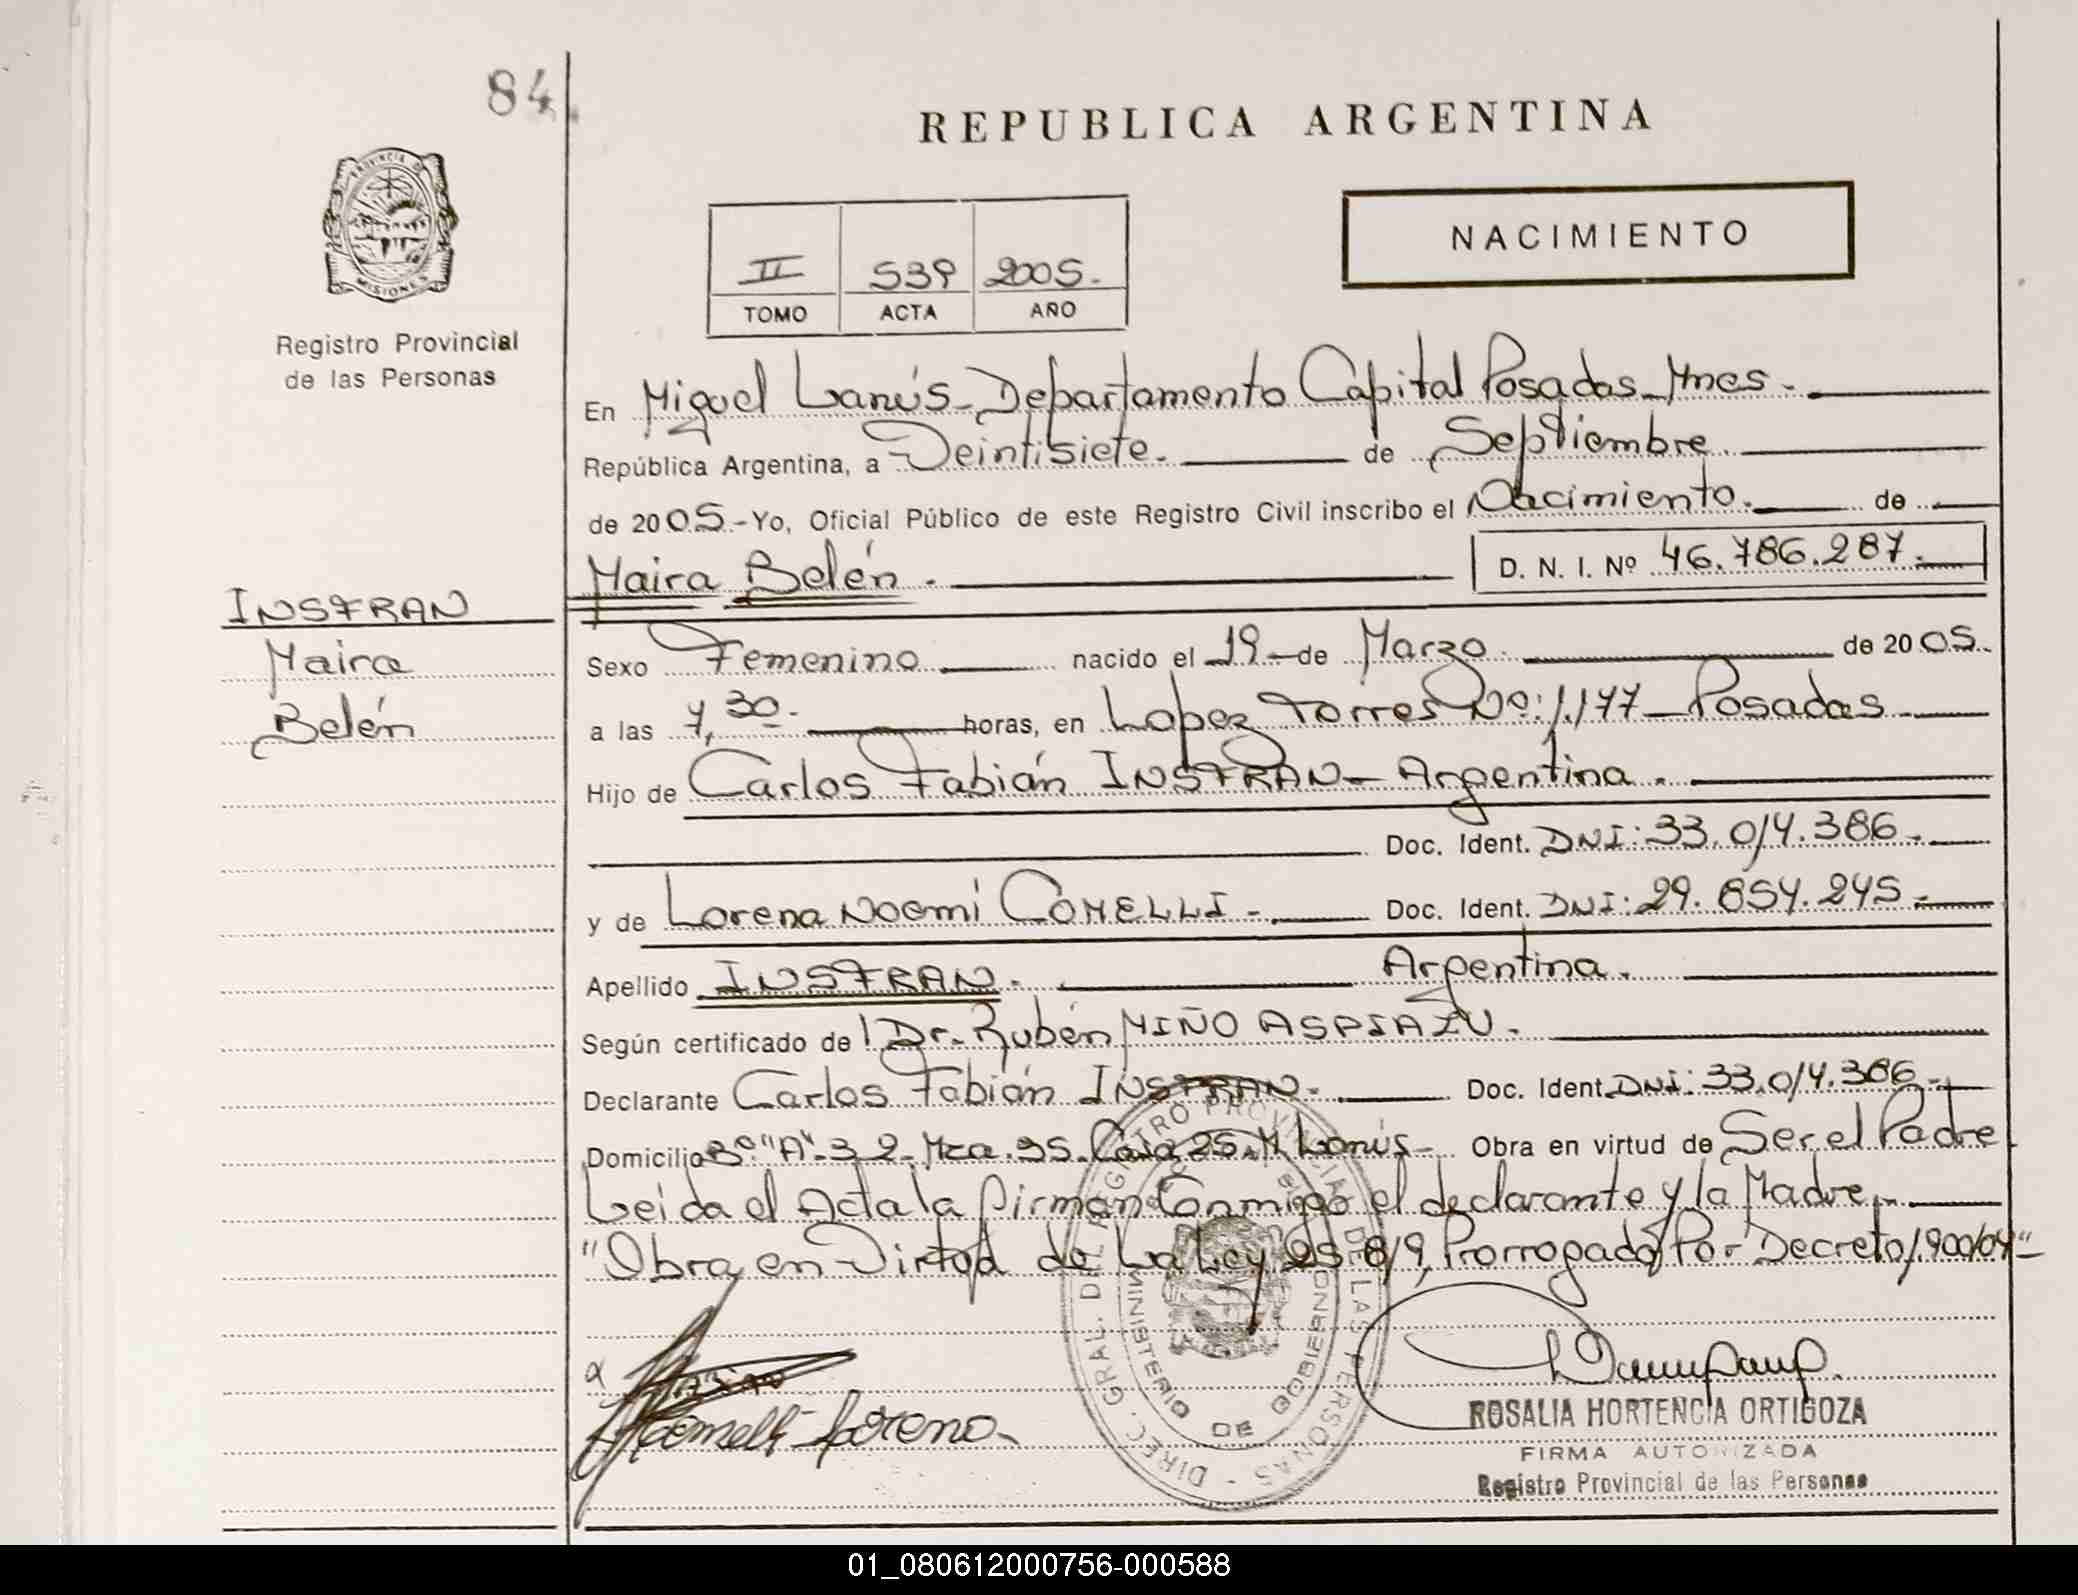 84
REPUBLICA ARGENTINA
PROVINCIA DE
MISIONES
Registro Provincial
de las Personas
II 539 2005.
TOMO ACTA AÑO
NACIMIENTO
En Miguel Lanús - Departamento Capital Posadas - Mnes.
República Argentina, a Veintisiete. de Septiembre
de 2005.- Yo, Oficial Público de este Registro Civil inscribo el Nacimiento. de
Maira Belén. D. N. I. Nº 46.786.287.
INSFRAN
Maira
Belén
Sexo Femenino nacido el 19 - de Marzo. de 2005.
a las 7,30. horas, en Lopez Torres Nº: 1.177 - Posadas
Hijo de Carlos Fabián INSFRAN - Argentina.
Doc. Ident. DNI: 33.014.386.
y de Lorena Noemi COMELLI - Doc. Ident. DNI: 29.854.245
Apellido INSFRAN. Argentina.
Según certificado de Dr. Rubén MIÑO ASPIAZU.
Declarante Carlos Fabián INSFRAN. Doc. Ident. DNI: 33.014.386
Domicilio Bº "A" 3 2 - Mza. 95. Casa 25. M. Lanús - Obra en virtud de Ser el Padre
Leida el Acta la firman Conmigo el declarante y la Madre.
"Obra en Virtud de La Ley 25.819, Prorrogado Por Decreto 1.900/04"
DIREC. GRAL. DEL REGISTRO PROVINCIAL DE LAS PERSONAS
MINISTERIO DE GOBIERNO
Comelli Lorena
ROSALIA HORTENCIA ORTIGOZA
FIRMA AUTORIZADA
Registro Provincial de las Personas
01_080612000756-000588